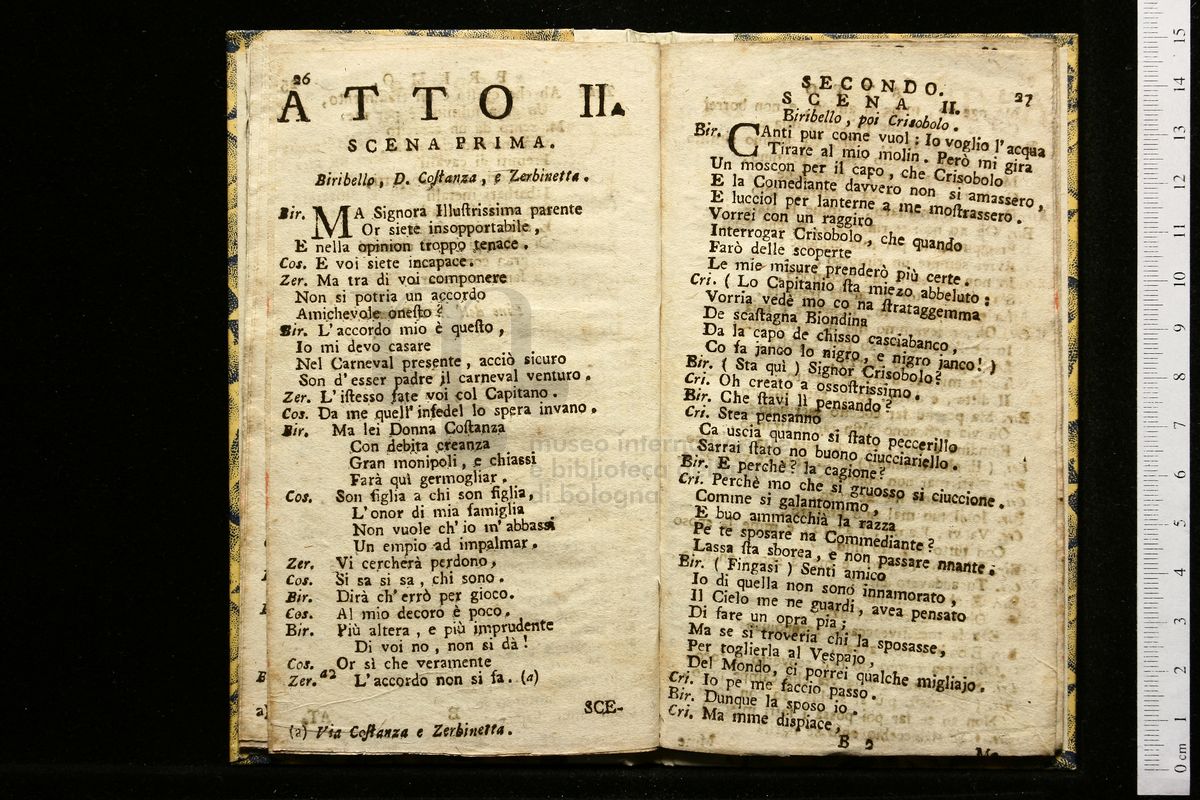 26
ATTO II.
SCENA PRIMA.
Biribello, D. Coſtanza, e Zerbinetta.
Bir. MA Signora Illuſtriſsima parente
Or siete insopportabile,
E nella opinion troppo tenace.
Cos. E voi siete incapace.
Zer. Ma tra di voi componere
Non si potria un accordo
Amichevole oneſto?
Bir. L'accordo mio è queſto,
Io mi devo casare
Nel Carneval presente, acciò sicuro
Son d'esser padre il carneval venturo.
Zer. L'iſtesso fate voi col Capitano.
Cos. Da me quell'infedel lo spera invano.
Bir. Ma lei Donna Coſtanza
Con debita creanza
Gran monipoli, e chiassi
Farà quì germogliar.
Cos. Son figlia a chi son figlia,
L'onor di mia famiglia
Non vuole ch'io m'abbassi
Un empio ad impalmar.
Zer. Vi cercherà perdono,
Cos. Si sa si sa, chi sono.
Bir. Dirà ch'errò per gioco.
Cos. Al mio decoro è poco.
Bir. Più altera, e più imprudente
Di voi no, non si dà!
Cos. Or sì che veramente
Zer. a2 L'accordo non si fa. (a)
SCE-
(a) Via Coſtanza e Zerbinetta.
SECONDO. 27
SCENA II.
Biribello, poi Crisobolo.
Bir. CAnti pur come vuol: Io voglio l'acqua
Tirare al mio molin. Però mi gira
Un moscon per il capo, che Crisobolo
E la Comediante davvero non si amassero,
E lucciol per lanterne a me moſtrassero.
Vorrei con un raggiro
Interrogar Crisobolo, che quando
Farò delle scoperte
Le mie misure prenderò più certe.
Cri. ( Lo Capitanio ſta miezo abbeluto:
Vorria vedè mo co na ſtrataggemma
De scaſtagna Biondina
Da la capo de chisso casciabanco,
Co fa janco lo nigro, e nigro janco! )
Bir. ( Sta quì ) Signor Crisobolo?
Cri. Oh creato a ossoſtrissimo.
Bir. Che ſtavi lì pensando?
Cri. Stea pensanno
Ca uscia quanno si ſtato peccerillo
Sarrai ſtato no buono ciucciariello.
Bir. E perchè? la cagione?
Cri. Perchè mo che si gruosso si ciuccione.
Comme si galantommo,
E buo ammacchià la razza
Pe te sposare na Commediante?
Lassa ſta sborea, e non passare nnante.
Bir. ( Fingasi ) Senti amico
Io di quella non sono innamorato,
Il Cielo me ne guardi, avea pensato
Di fare un opra pia;
Ma se si troveria chi la sposasse,
Per toglierla al Vespajo,
Del Mondo, ci porrei qualche migliajo.
Cri. Io pe me faccio passo.
Bir. Dunque la sposo io.
Cri. Ma mme dispiace,
B 2
museo
e biblioteca
di bologna
0 cm 1 2 3 4 5 6 7 8 9 10 11 12 13 14 15